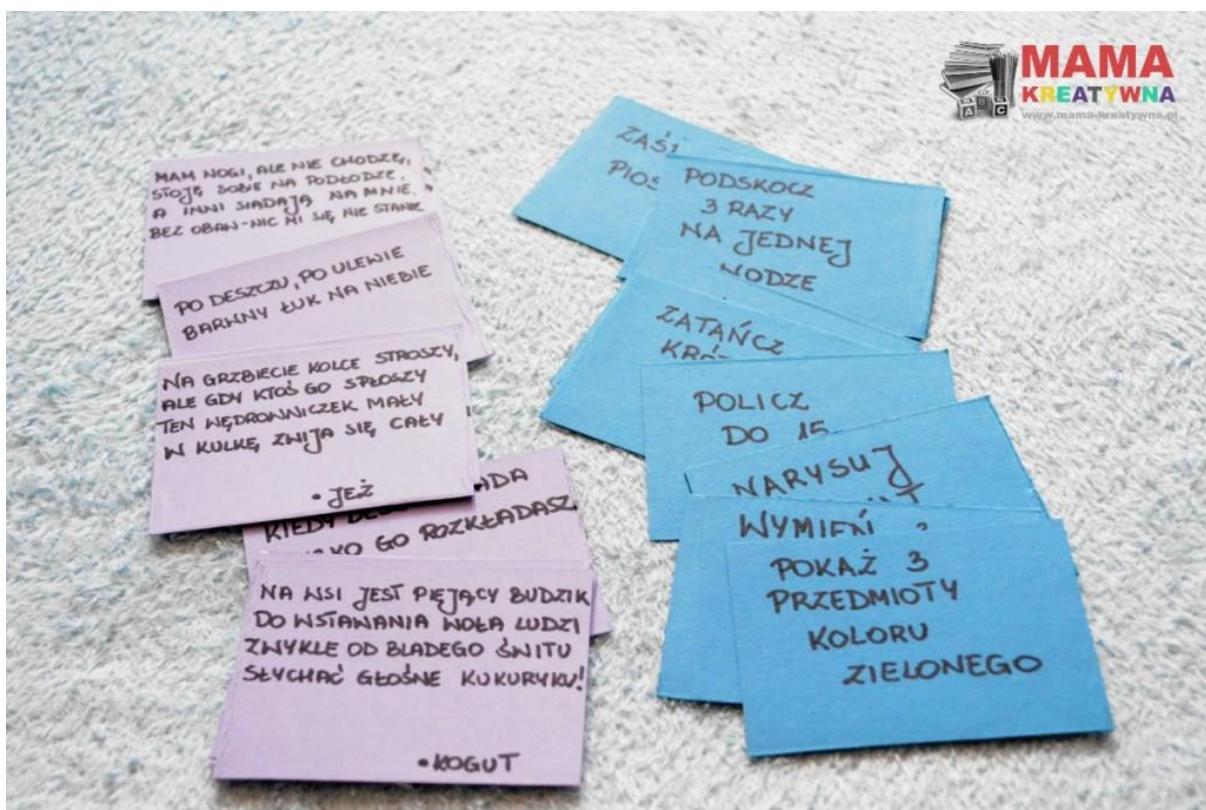 MAMA
KREATYWNA
www.mama-kreatywna.pl
MAM NOGI, ALE NIE CHODZĘ,
STOJĘ SOBIE NA PODŁODZE.
A INNI SIADAJĄ NA MNIE.
BEZ OBAW-NIC MI SIĘ NIE STANIE
PO DESZCZU, PO ULEWIE
BARWNY ŁUK NA NIEBIE
NA GRZBIECIE KOLCE STROSZY,
ALE GDY KTOŚ GO SPŁOSZY
TEN WĘDROWNICZEK MAŁY
W KULKĘ ZWIJA SIĘ CAŁY
• JEŻ
KIEDY
GO ROZKŁADASZ
NA WSI JEST PIEJĄCY BUDZIK
DO WSTAWANIA WOŁA LUDZI
ZWYKLE OD BLADEGO ŚWITU
SŁYCHAĆ GŁOŚNE KUKURYKU!
• KOGUT
PODSKOCZ
3 RAZY
NA JEDNEJ
NODZE
ZATAŃCZ
POLICZ
DO 15
NARYSUJ
WYMIEŃ
POKAŻ 3
PRZEDMIOTY
KOLORU
ZIELONEGO